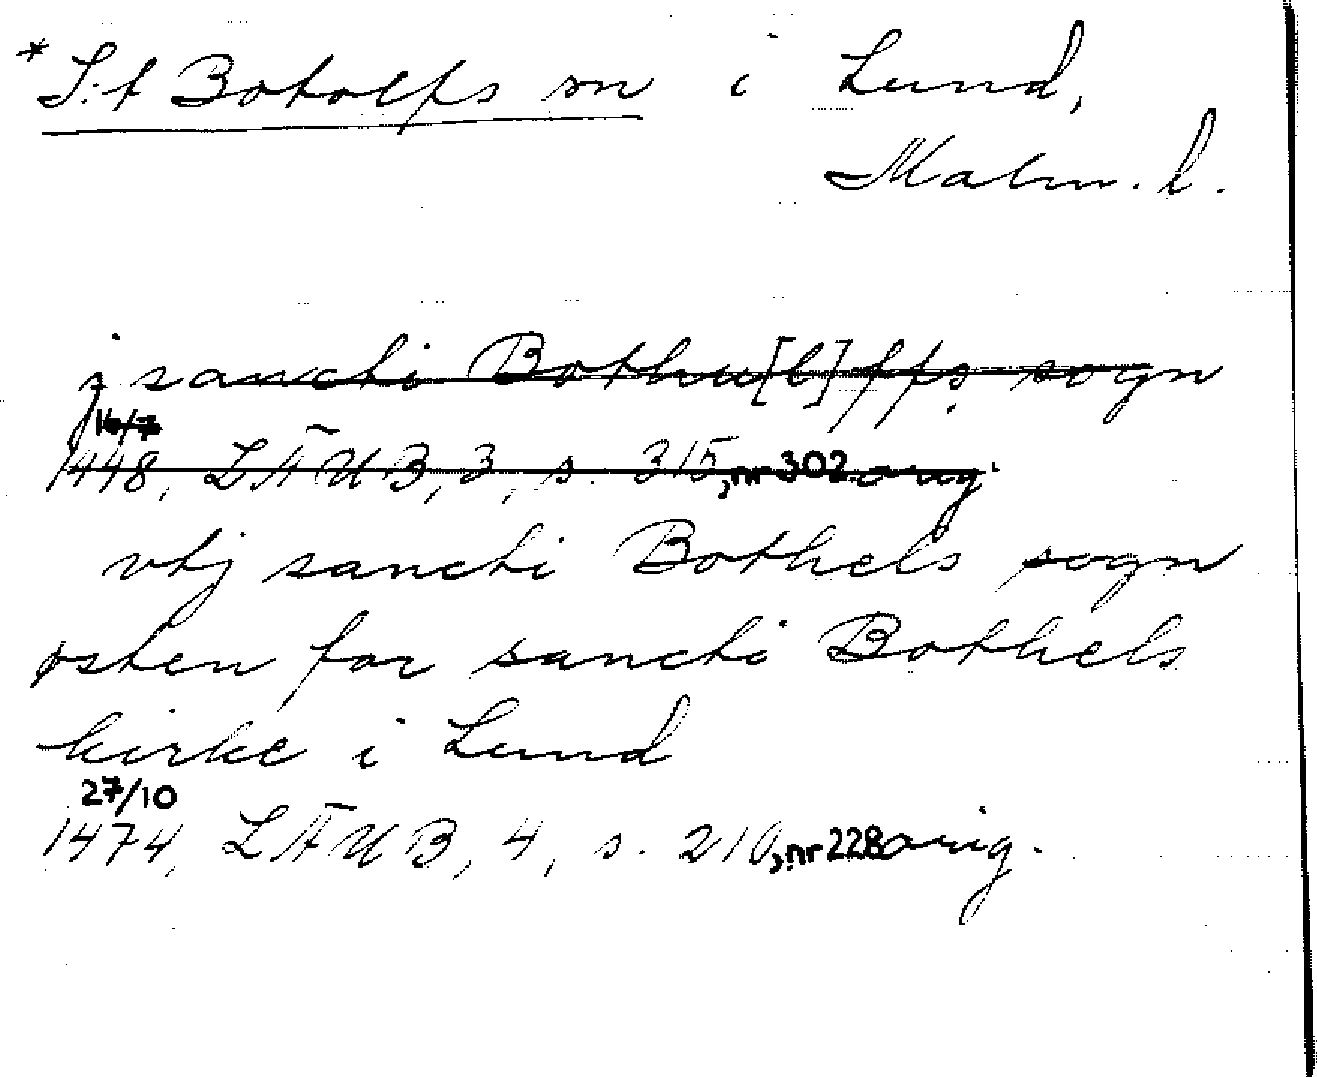 *S:t Botolfs sn i Lund,
Malm. l.
j sancti Bothu[l]ffs sogn
16/7
1448, LÄUB, 3, s. 315, nr 302 orig.
vtj sancti Bothels sogn
østen for sancti Bothels
kirke i Lund
27/10
1474, LÄUB, 4, s. 210, nr 228 orig.